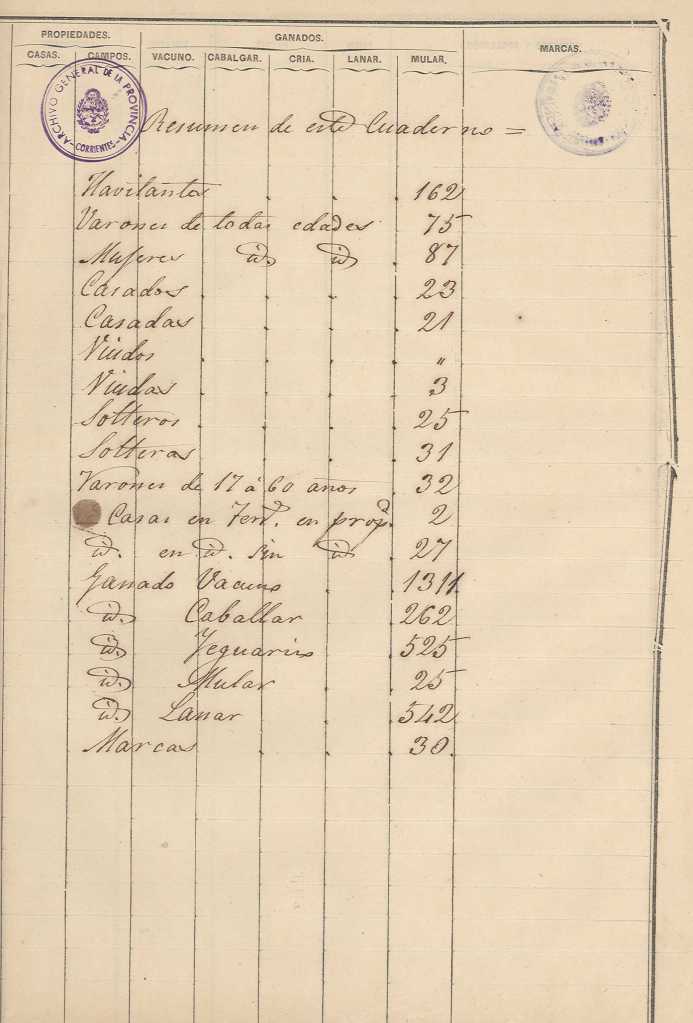 PROPIEDADES. GANADOS.
CASAS. CAMPOS. VACUNO. CABALGAR. CRIA. LANAR. MULAR. MARCAS.
ARCHIVO GENERAL DE LA PROVINCIA - CORRIENTES -
Resumen de este Cuaderno =
Havitantes . . . 162
Varones de todas edades . 75
Mujeres id. id . 87
Casados . . . . 23
Casadas . . . . 21
Viudos . . . . "
Viudas . . . . 3
Solteros . . . . 25
Solteras . . . . 31
Varones de 17 á 60 anos . 32
Casas en Terr. en prop. 2
id. en id. sin id . 27
Ganado Vacuno . . 1311
id. Caballar . . 262
id. Yeguariso . . 525
id. Mular . . 25
id. Lanar . . 542
Marcas . . . 30.